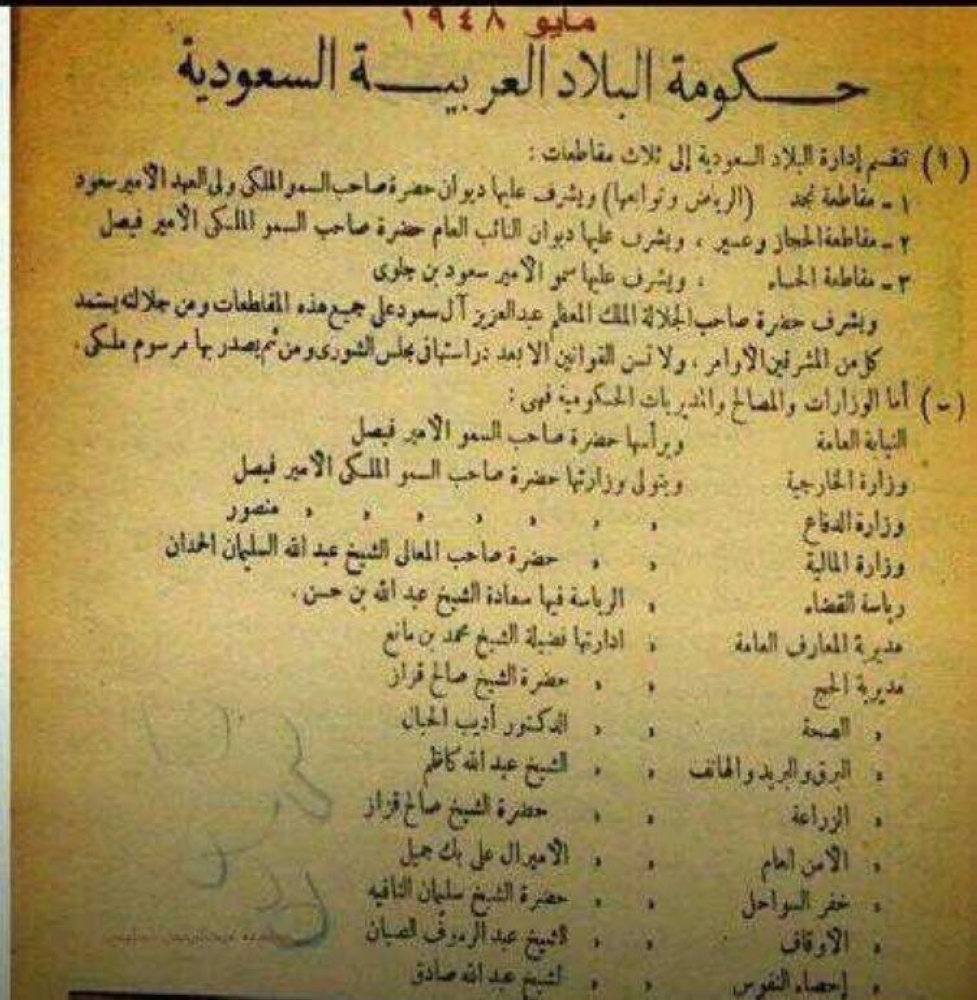 مايو ١٩٤٨
حكومة البلاد العربية السعودية
(٩) تنقسم إدارة البلاد السعودية إلى ثلاث مقاطعات :
١ - مقاطعة نجد (الرياض وتوابعها) ويشرف عليها ديوان حضرة صاحب السمو الملكي ولي العهد الأمير سعود
٢ - مقاطعة الحجاز وعسير ، ويشرف عليها ديوان النائب العام حضرة صاحب السمو الملكي الأمير فيصل
٣ - مقاطعة الحساء ، ويشرف عليها سمو الأمير سعود بن جلوى
ويشرف حضرة صاحب الجلالة الملك المعظم عبدالعزيز آل سعود على جميع هذه المقاطعات ومن جلالته يستمد
كل من المشرفين الأوامر ، ولا تسن القوانين الا بعد دراستها في مجلس الشورى ومن ثم يصدر بها مرسوم ملكي .
(ب) أما الوزارات والمصالح والمديريات الحكومية فهي :
النيابة العامة ويرأسها حضرة صاحب السمو الأمير فيصل
وزارة الخارجية ويتولى وزارتها حضرة صاحب السمو الملكي الأمير فيصل
وزارة الدفاع » » » » » » » منصور
وزارة المالية » » حضرة صاحب المعالي الشيخ عبد الله السليمان الحمدان
رياسة القضاء » الرياسة فيها سعادة الشيخ عبد الله بن حسن .
مديرية المعارف العامة » ادارتها فضيلة الشيخ محمد بن مانع
مديرية الحج » » حضرة الشيخ صالح قزاز
» الصحة » » الدكتور أديب الحبال
» البرق والبريد والهاتف » » الشيخ عبد الله كاظم
» الزراعة » » حضرة الشيخ صالح قزاز
» الأمن العام » » الأميرال على بك جميل
» خفر السواحل » » حضرة الشيخ سليمان النافيه
» الأوقاف » » الشيخ عبد الرموف الصبان
» إحصاء النفوس » » لشيخ عبد الله صادق